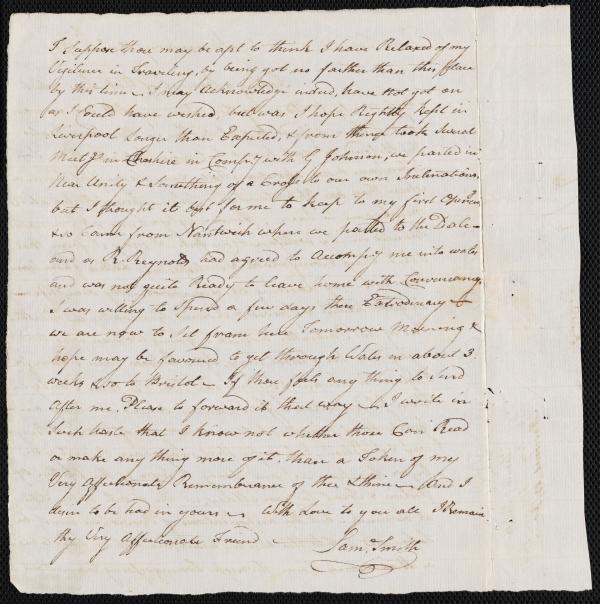 I Suppose thou may be apt to think I have Relaxed of my
Vigilence in Traveling, by being got no farther than this place
by this time I may Acknowledge indeed, have not got on
as I Could have wished but was I hope Rightly kept in
Liverpool Longer than Expected, & from thence took Several
Meetgs in Cheshire in Compy with G Johnson, we parted in
Near Unity & Something of a Cross to our own Inclinations,
but I thought it best for me to keep to my first
& so Came from Nantwich where we parted to the Dale
and as R. Reynolds had agreed to Accompy me into Wales
and was not quite Ready to leave home with Conveniency,
I was willing to Spend a few days there Extrodinary
we are now to Set from here Tomorrow Morning &
hope may be favoured to get through Wales in about 3
weeks & so to Bristol If thou feels any thing to Send
After me, Please to forward it that way I write in
Such haste that I know not whether thou Can Read
or make any thing more of it, than a Token of my
Very Affectionate Remembrance of thee & thine And I
desire to be had in yours With Love to you all I Remain
thy Very Affectionate Friend
Saml. Smith